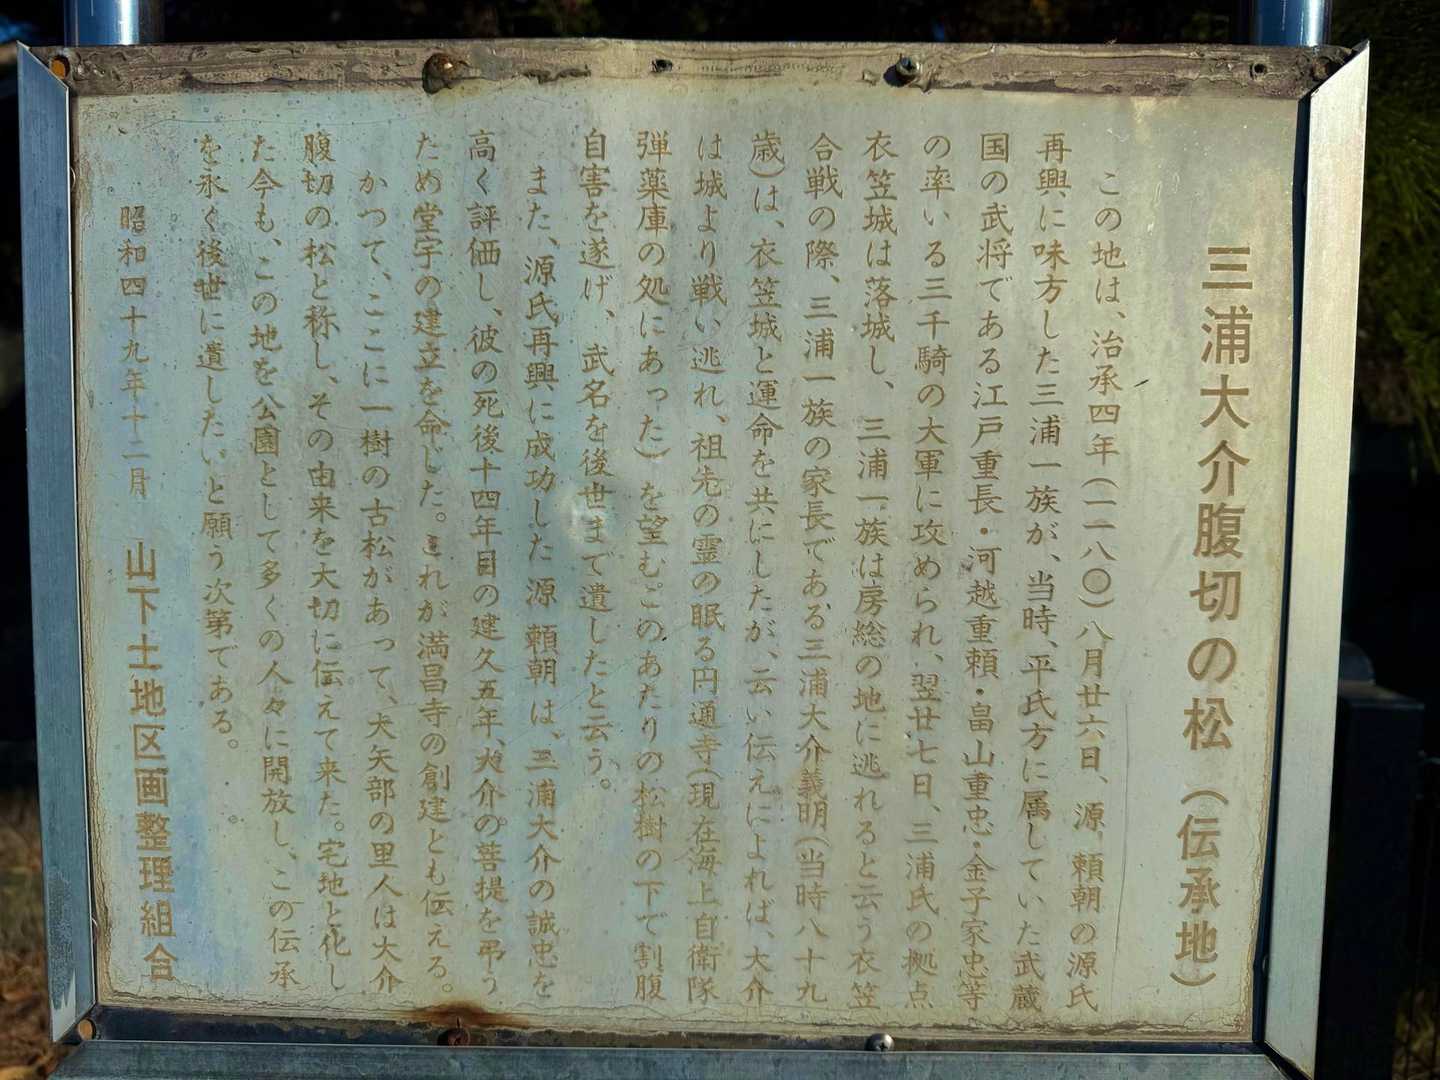 三浦大介腹切の松（伝承地）
この地は、治承四年（一一八〇）八月廿六日、源頼朝の源氏
再興に味方した三浦一族が、当時、平氏方に属していた武蔵
国の武将である江戸重長・河越重頼・畠山重忠・金子家忠等
の率いる三千騎の大軍に攻められ、翌廿七日、三浦氏の拠点
衣笠城は落城し、三浦一族は房総の地に逃れると云う衣笠
合戦の際、三浦一族の家長である三浦大介義明（当時八十九
歳）は、衣笠城と運命を共にしたが、云い伝えによれば、大介
は城より戦い逃れ、祖先の霊の眠る円通寺（現在海上自衛隊
弾薬庫の処にあった）を望む。このあたりの松樹の下で割腹
自害を遂げ、武名を後世まで遺したと云う。
また、源氏再興に成功した源頼朝は、三浦大介の誠忠を
高く評価し、彼の死後十四年目の建久五年、大介の菩提を弔う
ため堂宇の建立を命じた。これが満昌寺の創建とも伝える。
かつて、ここに一樹の古松があって、大矢部の里人は大介
腹切の松と称し、その由来を大切に伝えて来た。宅地と化し
た今も、この地を公園として多くの人々に開放し、この伝承
を永く後世に遺したいと願う次第である。
昭和四十九年十二月　山下土地区画整理組合